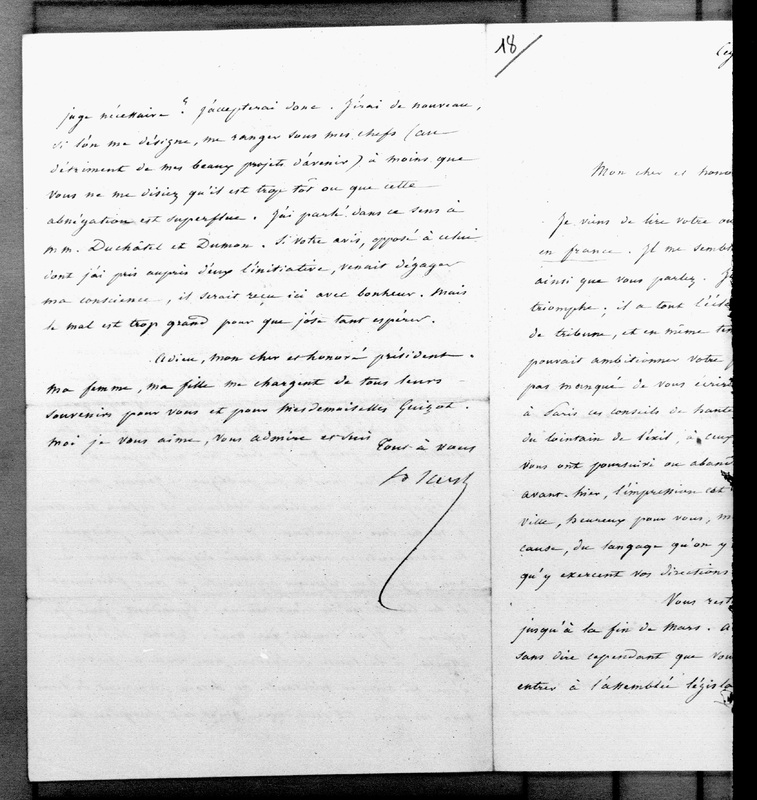 juge nécessaire ? J'accepterai donc. J'irai de nouveau,
si l'on me désigne, me ranger sous mes chefs (au
détriment de mes beaux projets d'avenir) à moins que
vous ne me disiez qu'il est trop tôt ou que cette
abnégation est superflue. J'ai parlé dans ce sens à
m.m. Duchâtel et Dumon. Si votre avis, opposé à celui
dont j'ai pris auprès d'eux l'initiative, venait dégager
ma conscience, il serait reçu ici avec bonheur. Mais
le mal est trop grand pour que j'ose tant espérer.
Adieu, mon cher et honoré président.
Ma femme, ma fille me chargent de tous leurs
souvenirs pour vous et pour Mesdemoiselles Guizot.
Moi je vous aime, vous admire et suis
Tout à vous
18
Mon cher et hono
Je viens de lire votre ou
en france. Il me sembl
ainsi que vous parlez. J
triomphe; il a tout l'écla
de tribune, et en même tem
pouvait ambitionner votre
pas manqué de vous écrire
à Paris ces conseils de haute
du lointain de l'exil, à ceux
vous ont poursuivi ou aband
avant-hier, l'impression est
ville, heureux pour vous, m
cause, du langage qu'on y
qu'y exercent vos directions
Vous rest
jusqu'à la fin de Mars. A
sans dire cependant que vou
entrer à l'assemblée législa